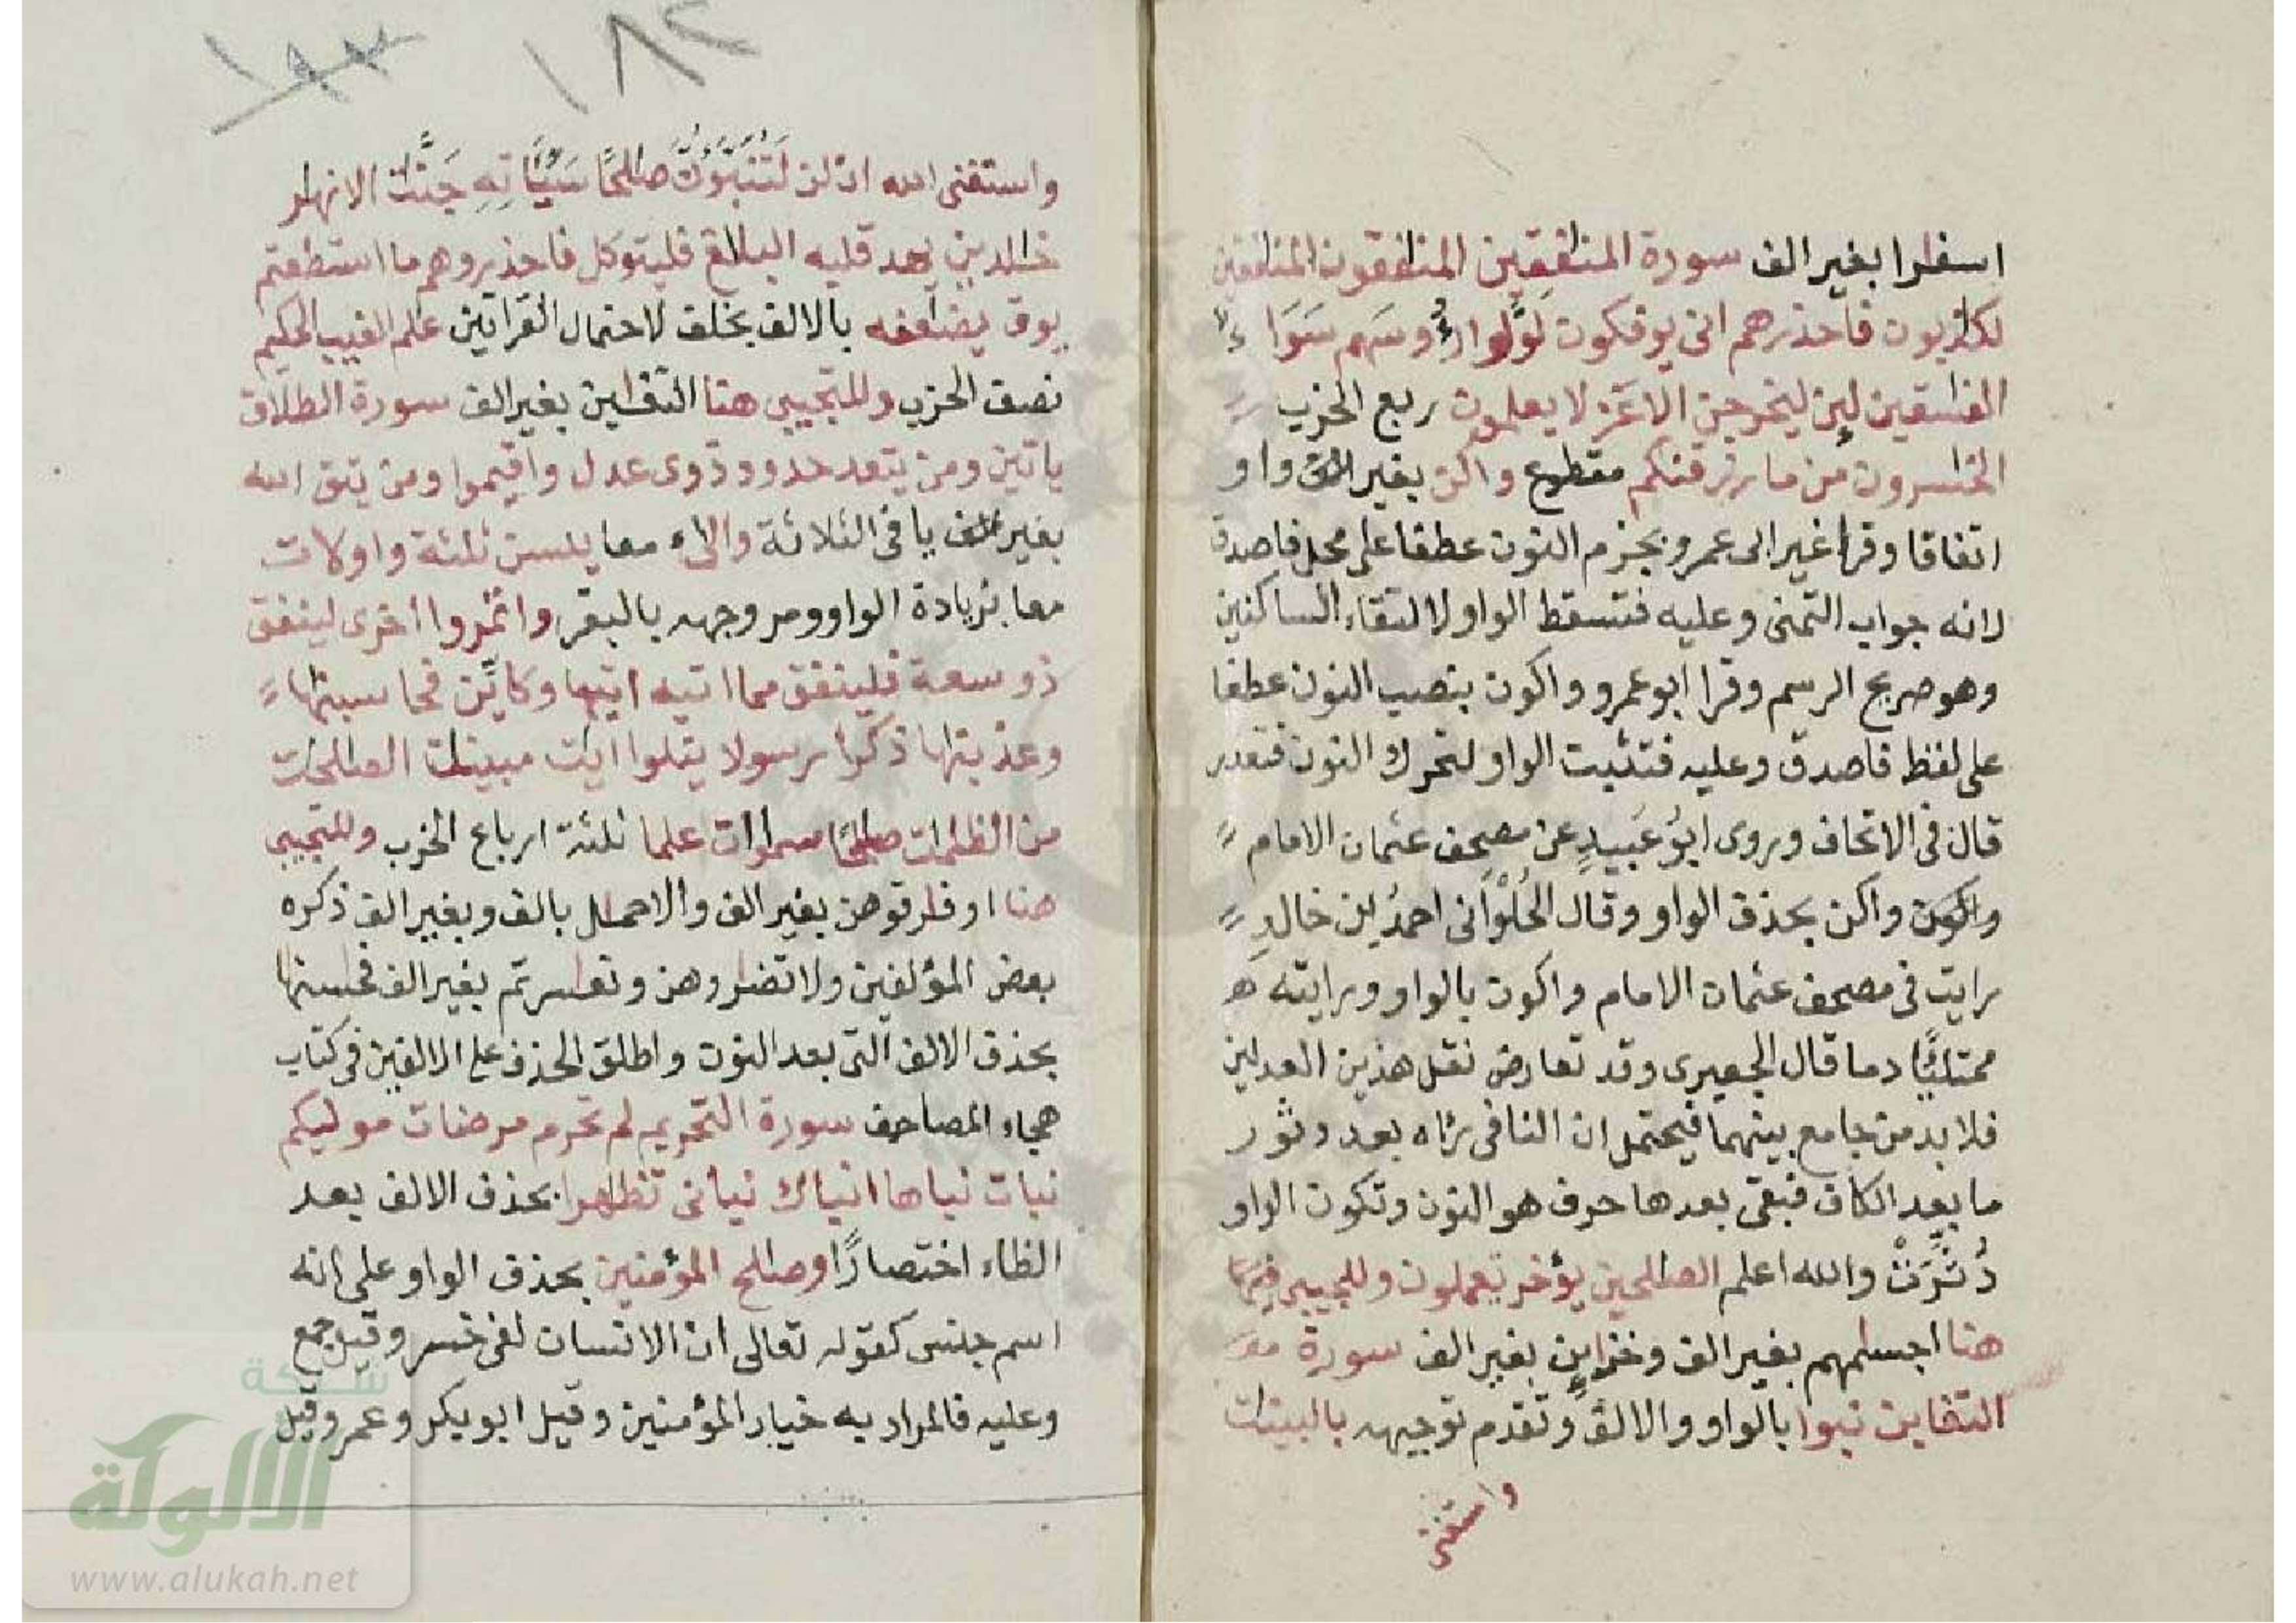 اسفارا بغير الف سورة المنفقين المنفقون المنفقين
لكذبون فاحذرهم انى يوفكون لوَّوا رءُوسَهم سَوَاءٌ
الفسقين لئن ليخرجن الاعَزّ لا يعلمون ربع الحزب
الخسرون من ما رزقنكم مقطوع واكن بغير واو
اتفاقا وقرا غير ابى عمرو بجزم النون عطفا على محل فاصدق
لانه جواب التمنى وعليه فتسقط الواو لالتقاء الساكنين
وهو صريح الرسم وقرا ابو عمرو واكون بنصب النون عطفا
على لفظ فاصدق وعليه فتثبت الواو لتحرك النون فتعدر
قال فى الاتحاف وروى ابوُ عَبيدٍ عن مصحف عثمان الامام
واكن بحذف الواو وقال الحُلْوَانى احمدُ بن خالدٍ
رايت فى مصحف عثمان الامام واكون بالواو ورايته
ممتلئًا دما قال الجعبرى وقد تعارض نقل هذين العدلين
فلا بد من جامع بينهما فيحتمل ان النافى رءاه بعد دثور
ما بعد الكاف فبقى بعدها حرف هو النون وتكون الواو
دُثِّرَتْ والله اعلم الصلحين يؤخر تعملون وللتجيبى
هنا اجسمهم بغير الف وخزاين بغير الف سورة
التغابن نبوا بالواو والالف وتقدم توجيهه بالبينت
واستغنى
واستغنى الله ان لن لَتُنَبَّؤنَّ صلحًا سَيِّاتِهِ جَنّت الانهر
خلدين يهد قلبه البلغ فليتوكل فاحذروهم ما استطعتم
يوق يضاعفه بالالف بخلف لاحتمال القراتين علم الغيب الحكيم
نصف الحزب وللتجيبى هنا التغبن بغير الف سورة الطلاق
ياتين ومن يتعد حدود ذوى عدل واقيموا ومن يتق الله
بغير يا فى الثلاثة والئ معا يئسن ثلثة واولات
معا بزيادة الواو ومر وجهه بالبقر واتمروا اخرى لينفق
ذو سعة فلينفق مما اتيه اتيها وكايّن فحاسبنها
وعذبنها ذكرًا رسولا يتلوا ايت مبينت الصلحت
من الظلمت صلحًا سموات علما ثلثة ارباع الحزب وللتجيبى
هنا او فرقوهن بغير الف والاحمل بالف وبغير الف ذكره
بعض المؤلفين ولا تضروهن وتعسرتم بغير الف فحسبنها
بحذف الالف التى بعد النون واطلق الحذف على الالفين فى كتاب
هجاء المصاحف سورة التحريم لم تحرم مرضات موليكم
نبات نباها انباك نبانى تظهرا بحذف الالف بعد
الظاء اختصارًا وصلح المؤمنين بحذف الواو على انه
اسم جنس كقوله تعالى ان الانسان لفى خسر وقيل جمع
وعليه فالمراد به خيار المؤمنين وقيل ابو بكر وعمر وقيل
١٨٢
شبكة
الألوكة
www.alukah.net